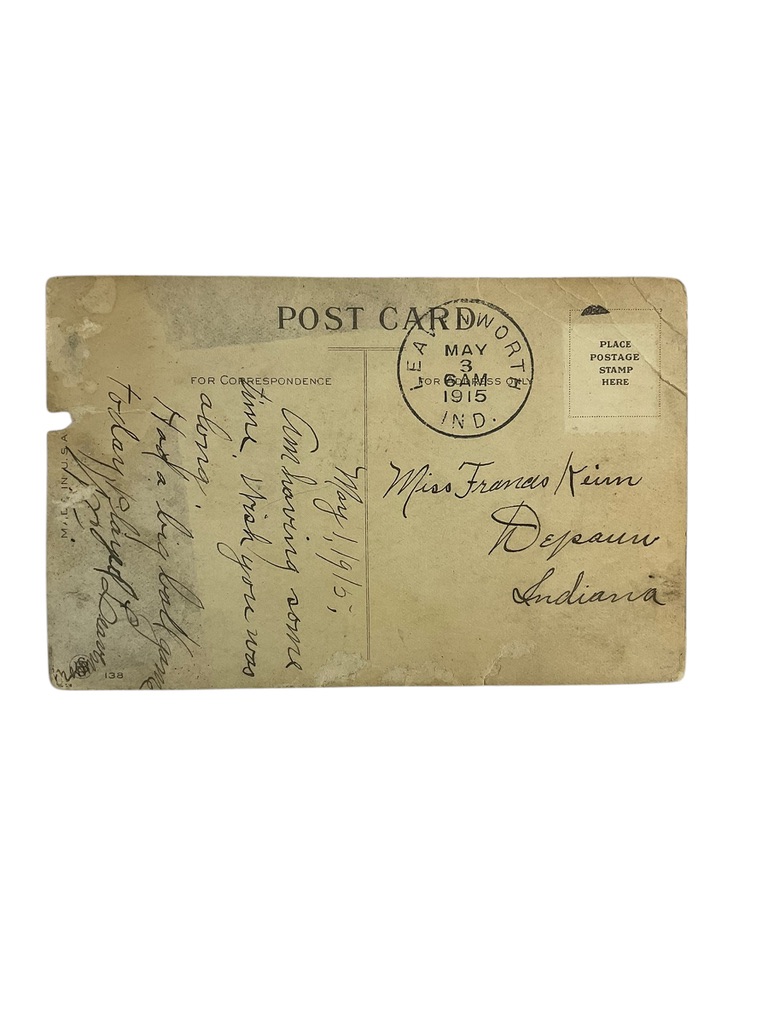 POST CARD
FOR CORRESPONDENCE
FOR ADDRESS ONLY
PLACE
POSTAGE
STAMP
HERE
LEAVENWORTH
MAY
3
6AM
1915
IND.
Miss Francis Keim
Depauw
Indiana
May 1, 1915,
Am having some
time, Wish you was
along.
Had a big ball game
today played
MADE IN U.S.A.
138